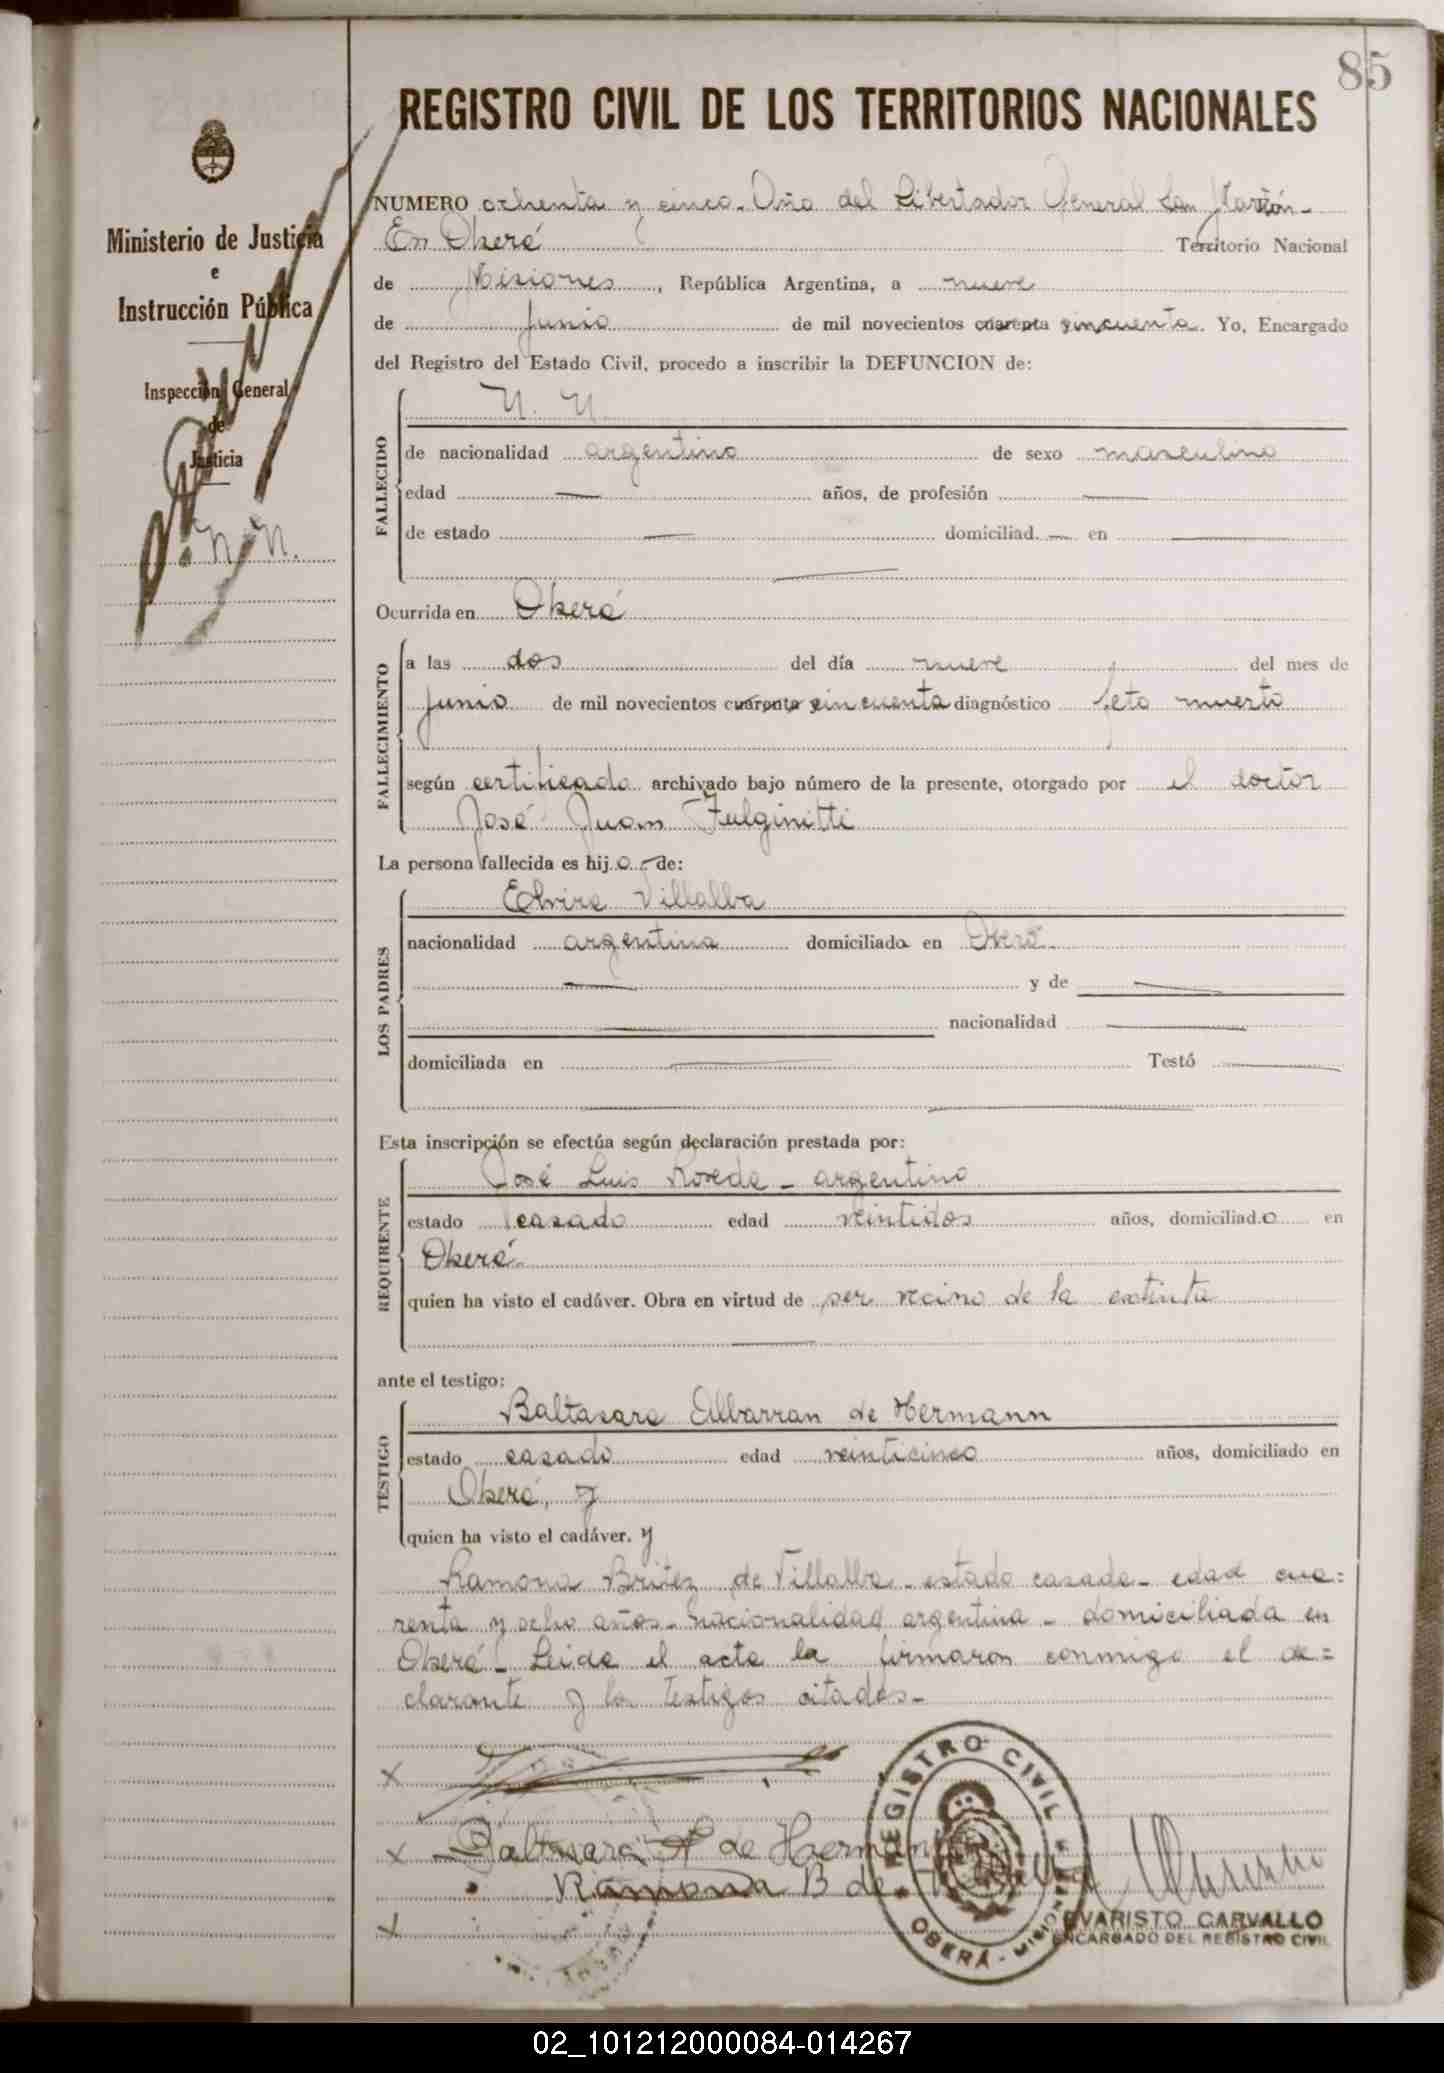 85
REGISTRO CIVIL DE LOS TERRITORIOS NACIONALES
Ministerio de Justicia
e
Instrucción Pública
Inspección General
de
Justicia
N. N.
NUMERO ochenta y cinco - Año del Libertador General San Martín -
En Oberá Territorio Nacional
de Misiones, República Argentina, a nueve
de Junio de mil novecientos cuarenta cincuenta. Yo, Encargado
del Registro del Estado Civil, procedo a inscribir la DEFUNCION de:
FALLECIDO
N. N.
de nacionalidad argentino de sexo masculino
edad — años, de profesión —
de estado — domiciliad. — en —
Ocurrida en Oberá
FALLECIMIENTO
a las dos del día nueve del mes de
Junio de mil novecientos cuarenta cincuenta diagnóstico feto muerto
según certificado archivado bajo número de la presente, otorgado por el doctor
José Juan Fulginitti
La persona fallecida es hijo de:
LOS PADRES
Elvira Villalba
nacionalidad argentina domiciliada en Oberá -
— y de —
— nacionalidad —
domiciliada en — Testó —
Esta inscripción se efectúa según declaración prestada por:
REQUIRENTE
José Luis - argentino
estado casado edad veintidos años, domiciliado en
Oberá -
quien ha visto el cadáver. Obra en virtud de ser vecino de la extinta
ante el testigo:
TESTIGO
Baltasara Albarran de Hermann
estado casado edad veinticinco años, domiciliado en
Oberá, y
quien ha visto el cadáver. y
Ramona Britez de Villalba - estado casada - edad cua=
renta y ocho años - nacionalidad argentina - domiciliada en
Oberá - Leida el acta la firmaron conmigo el de=
clarante y los testigos citados -
x
x Baltasara A de Hermann
Ramona B de Villalba
x
REGISTRO CIVIL
OBERÁ - MISIONES
EVARISTO CARVALLO
ENCARGADO DEL REGISTRO CIVIL
02_101212000084-014267